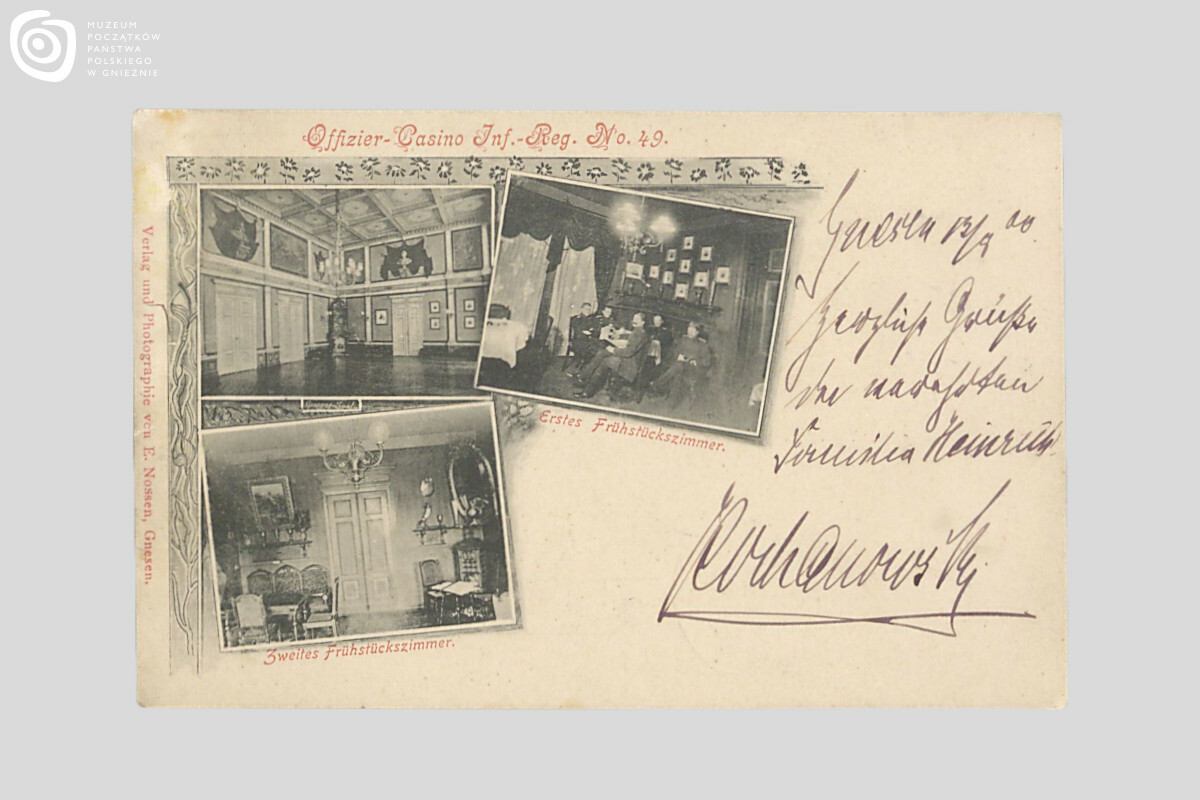 MUZEUM
POCZĄTKÓW
PAŃSTWA
POLSKIEGO
W GNIEŹNIE
Offizier-Casino Inf.-Reg. No. 49.
Verlag und Photographie von E. Nossen, Gnesen.
Erstes Frühstückszimmer.
Zweites Frühstückszimmer.
Gnesen 13/9 00
Herzliche Grüße
der verehrten
Familie Heinrich
Kochanowski